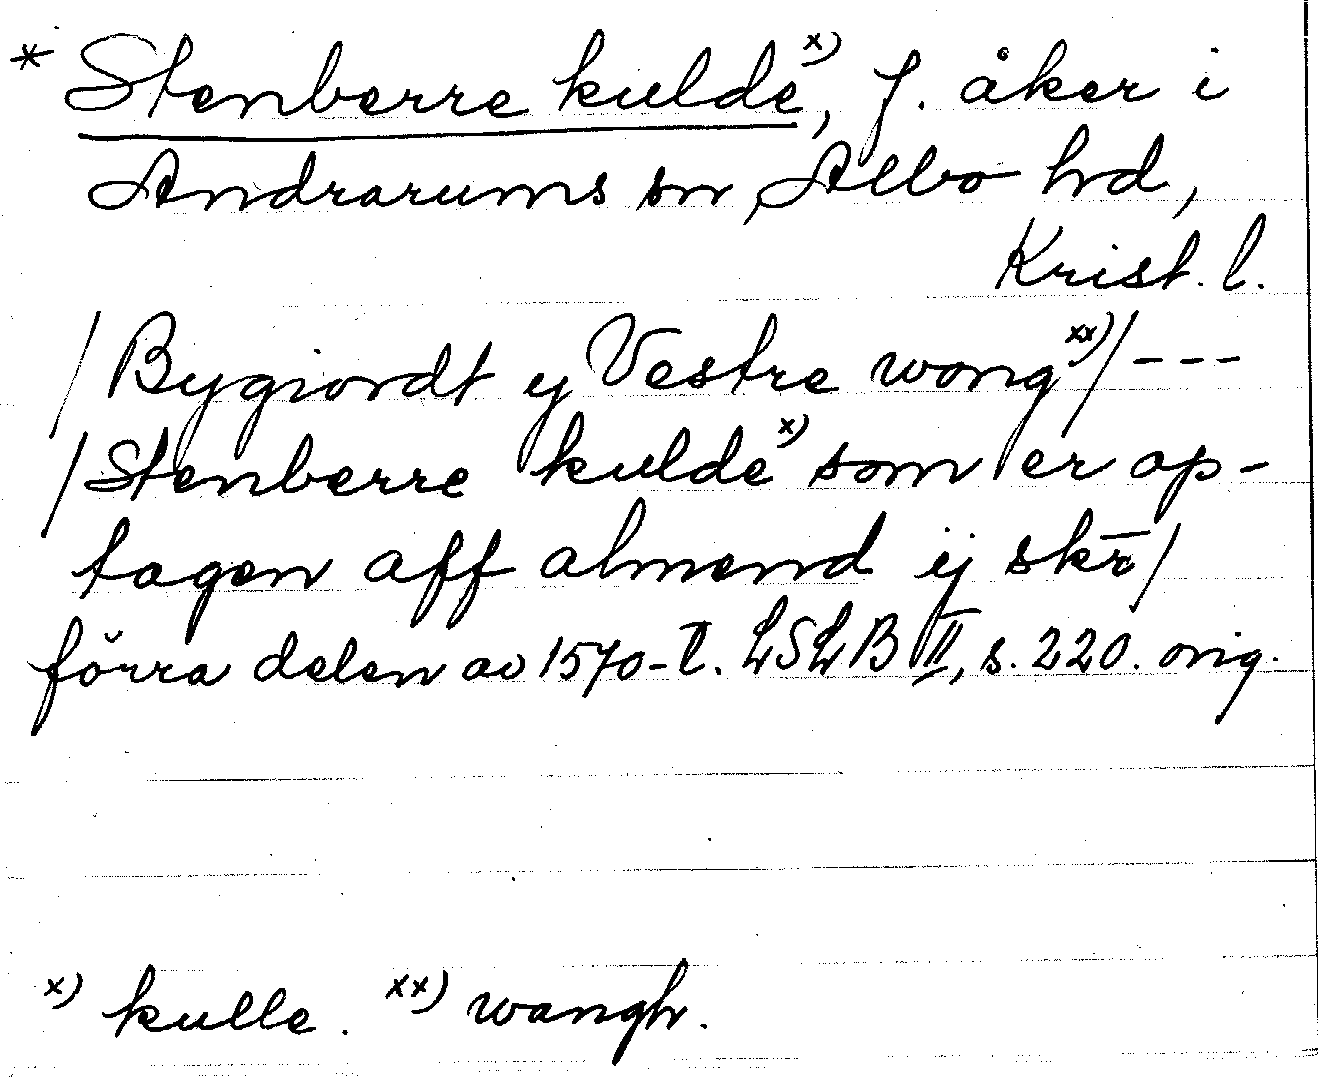 * Stenberre kulde x), f. åker i
Andrarums sn, Albo hd,
Krist. l.
/Bygiordt ij Vestre wong xx)/ ---
/Stenberre kulde x) som er op-
tagen aff almend ij skr̄/
förra delen av 1570-t. LSLB II, s. 220. orig.
x) kulle. xx) wangh.